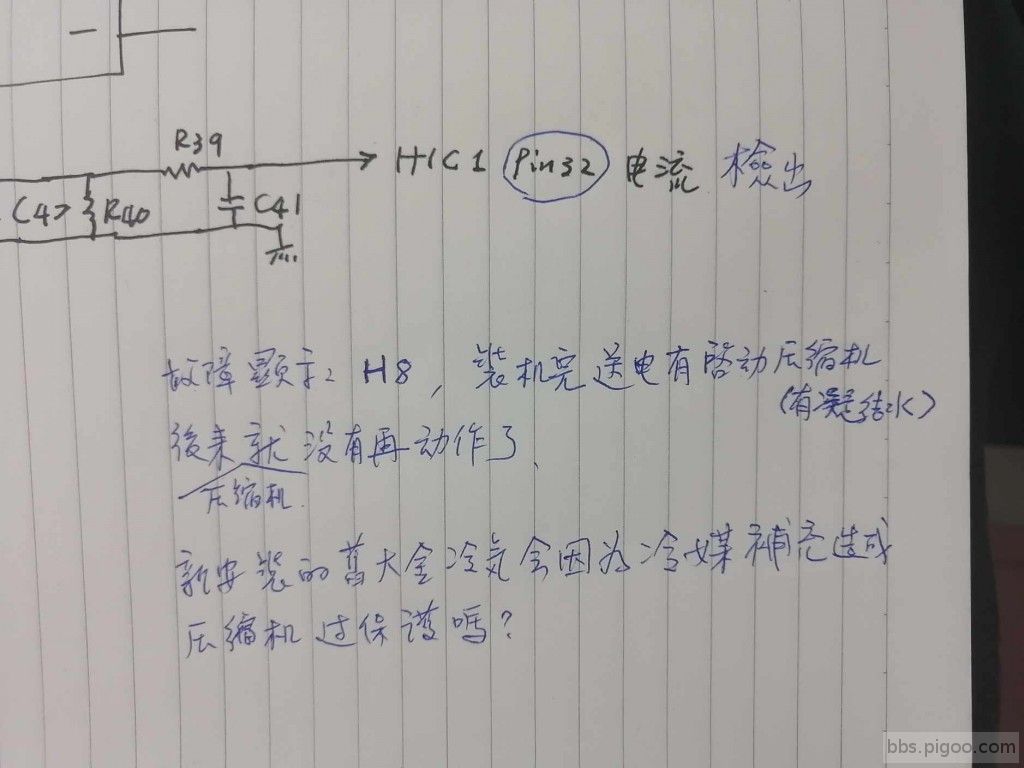 R39
HIC1 Pin32 电流 檢出
C47 R40 C41
故障顯示 H8, 裝机完送电有啓动压缩机
(有凝结水)
後来就没有再动作了.
压缩机
新安裝的舊大金冷气会因为冷媒補充造成
压缩机过保護嗎?
bbs.pigoo.com